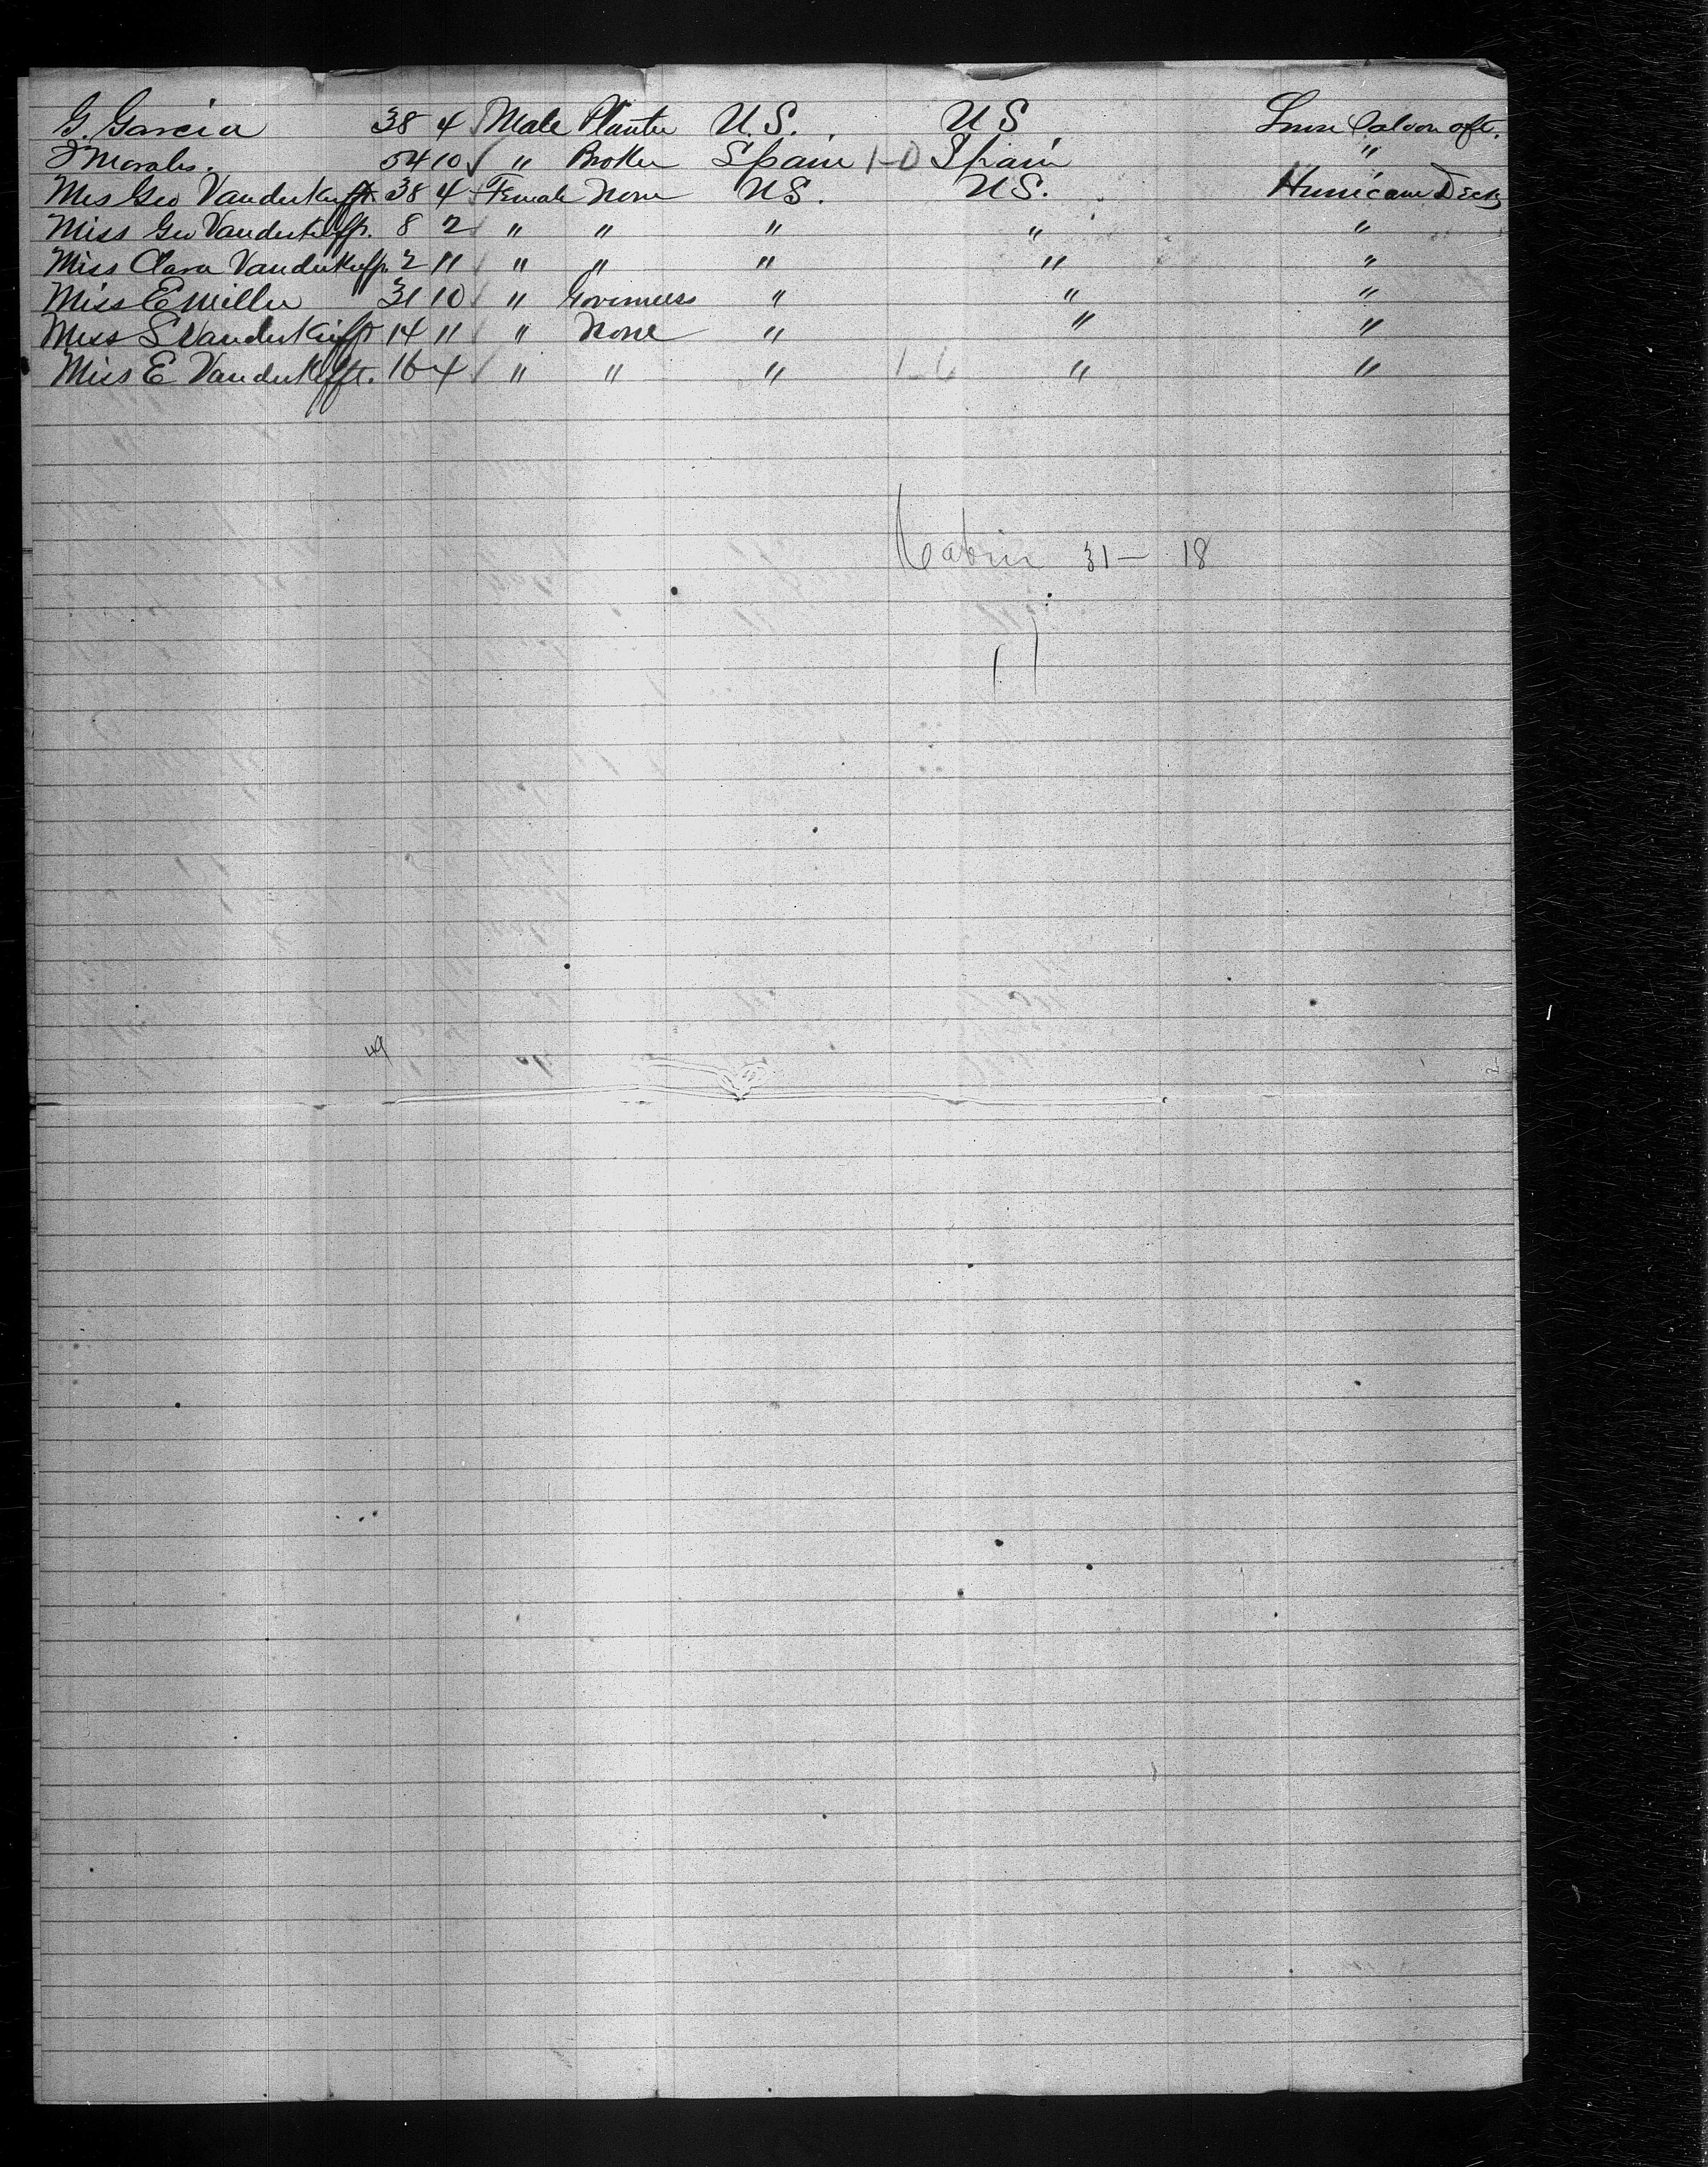 G. Garcia 38 4 Male Planter U.S. US Lower Saloon aft.
J Morales. 54 10 " Broker Spain 1-0 Spain "
Mrs Geo Vanderkufft 38 4 Female None US. US. Hurricane Deck
Miss Geo Vanderkufft. 8 2 " " " " "
Miss Clara Vanderkufft. 2 11 " " " " "
Miss E Miller 31 10 " Governess " " "
Miss S Vanderkufft 14 11 " None " " "
Miss E Vanderkufft. 16 4 " " " 1-6 " "
Cabin 31 — 18